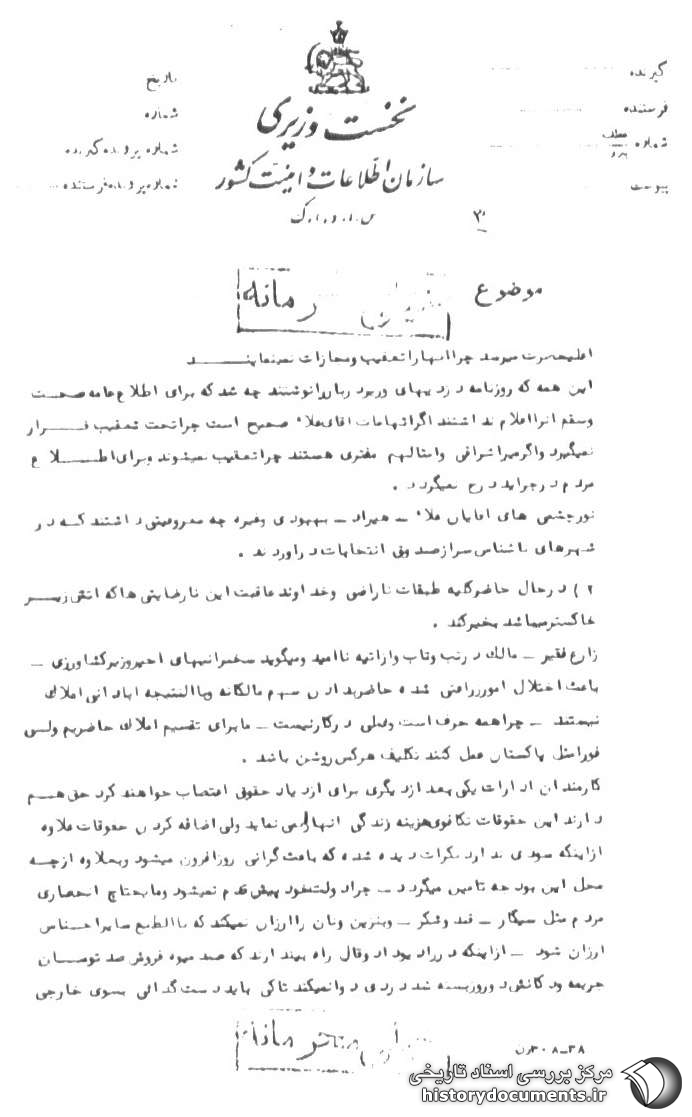 گیرنده
فرستنده
شماره عطف پیرو
پیوست
تاریخ
شماره
شماره پرونده گیرنده
شماره پرونده فرستنده
نخست وزیری
سازمان اطلاعات و امنیت کشور
س.ا.و.ا.ک
۳
موضوع
خیلی محرمانه
اعلیحضرت میرسد چرا آنها را تعقیب و مجازات نمینمایند
این همه که روزنامه دزدیهای وزیر ربا را نوشتند چه شد که برای اطلاع عامه صحت
و سقم آنرا اعلام نداشتند اگر اتهامات آقای علاء صحیح است چرا تحت تعقیب قرار
نمیگیرد و اگر میراشرافی و امثالهم مفتری هستند چرا تعقیب نمیشوند و برای اطلاع
مردم در جراید درج نمیگردد .
نورچشمی های آقایان علاء ـ هیراد ـ بهبودی و غیره چه معروفیتی داشتند که در
شهرهای ناشناس سر از صندوق انتخابات درآوردند .
۲ ) در حال حاضر کلیه طبقات ناراضی و خداوند عاقبت این نارضایتی ها که آتش زیر
خاکستر میباشد بخیر کند .
زارع فقیر ـ مالک در تب و تاب و از آتیه ناامید و میگوید سخنرانیهای اخیر وزیر کشاورزی ـ
باعث اختلال امور زراعتی شده حاضر بدادن سهم مالکانه و بالنتیجه آبادانی املاک
نیستند ـ چرا همه حرف است و عملی در کار نیست ـ ما برای تقسیم املاک حاضریم ولی
فورا مثل پاکستان عمل کنند تکلیف هرکس روشن باشد .
کارمندان ادارات یکی بعد از دیگری برای ازدیاد حقوق اعتصاب خواهند کرد حق هم
دارند این حقوقات تکافوی هزینه زندگی آنها را نمی نماید ولی اضافه کردن حقوقات علاوه
از اینکه سودی ندارد بکرات دیده شده که باعث گرانی روزافزون میشود و بعلاوه از چه
محل این بودجه تامین میگردد ـ چرا دولت خود پیش قدم نمیشود و مایحتاج انحصاری
مردم مثل سیگار ـ قند و شکر ـ و بنزین و نان را ارزان نمیکند که بالطبع سایر اجناس
ارزان شود ـ از اینکه در رادیو داد و قال راه بیندازند که صد میوه فروش صد تومان
جریمه و دکانش دو روز بسته شد دردی دوا نمیکند تا کی باید دست گدائی بسوی خارجی
خیلی محرمانه
مرکز بررسی اسناد تاریخی
historydocuments.ir